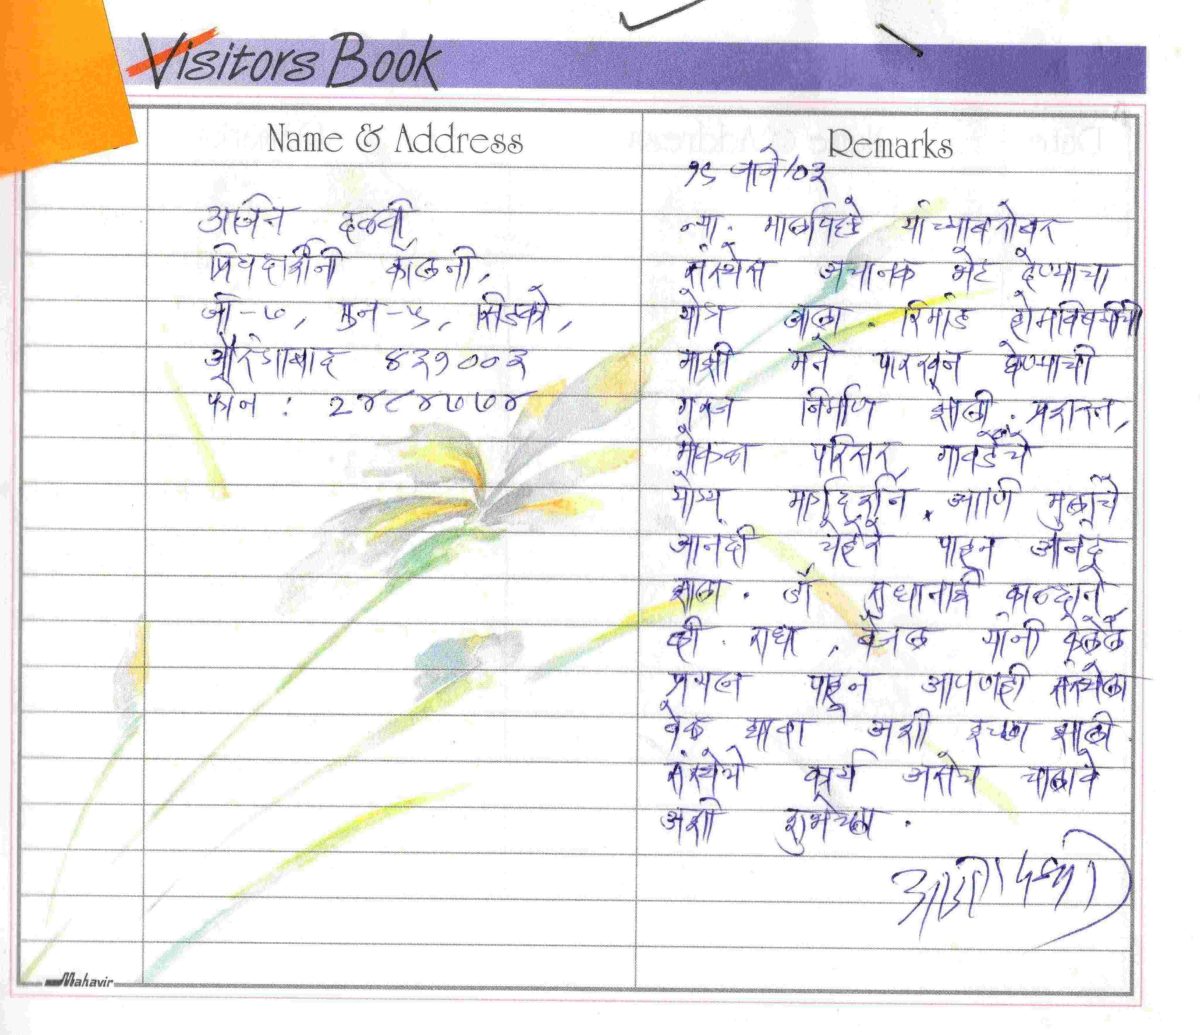 Visitors Book
Name & Address
Remarks
१९ जाने/०३
दळवी
प्रियदर्शिनी कॉलनी,
जी-७, एन-५, सिडको,
औरंगाबाद ४३१००३
फोन : २४८४७७४
न्या. यांच्याबरोबर
संस्थेस अचानक भेट देण्याचा
योग आला. रिमांड होमविषयीची
माझी मते पारखून घेण्याची
गरज निर्माण झाली. प्रशस्त,
मोकळा परिसर, गावंडेंचे
योग्य मार्गदर्शन, आणि मुलांचे
आनंदी चेहेरे पाहून आनंद
झाला. डॉ. सुधाताई काल्दाते
व्ही. राधा, यांनी केलेले
प्रयत्न पाहून आपणही संस्थेला
वेळ द्यावा अशी इच्छा झाली
संस्थेचे कार्य असेच चालावे
अशी शुभेच्छा.
Mahavir